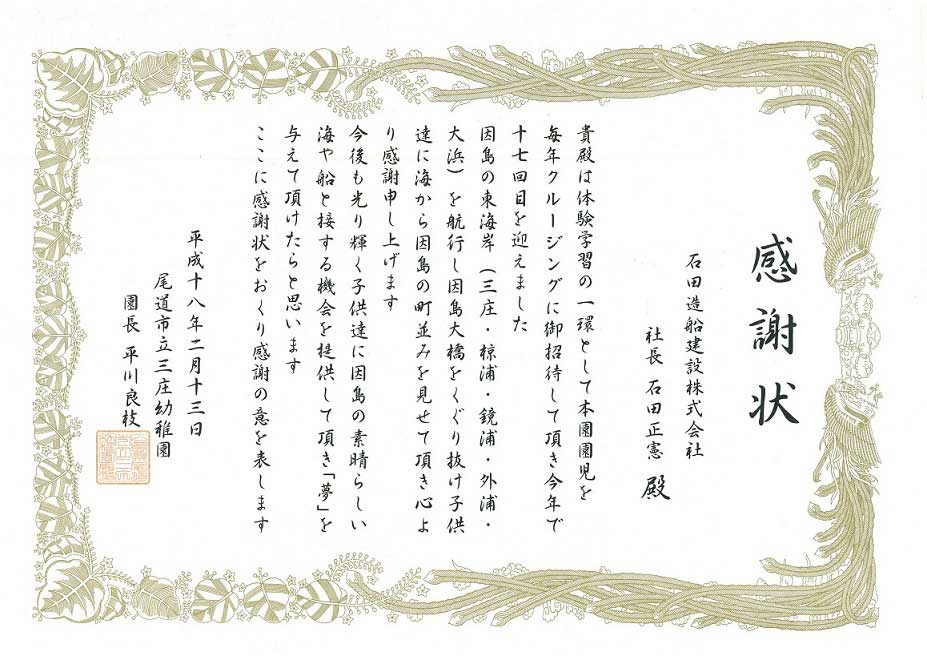 感謝状
石田造船建設株式会社
社長 石田正憲 殿
貴殿は体験学習の一環として本園園児を
毎年クルージングに御招待して頂き今年で
十七回目を迎えました
因島の東海岸(三庄・椋浦・鏡浦・外浦・
大浜)を航行し因島大橋をくぐり抜け子供
達に海から因島の町並みを見せて頂き心よ
り感謝申し上げます
今後も光り輝く子供達に因島の素晴らしい
海や船と接する機会を提供して頂き「夢」を
与えて頂けたらと思います
ここに感謝状をおくり感謝の意を表します
平成十八年二月十三日
尾道市立三庄幼稚園
園長 平川良枝